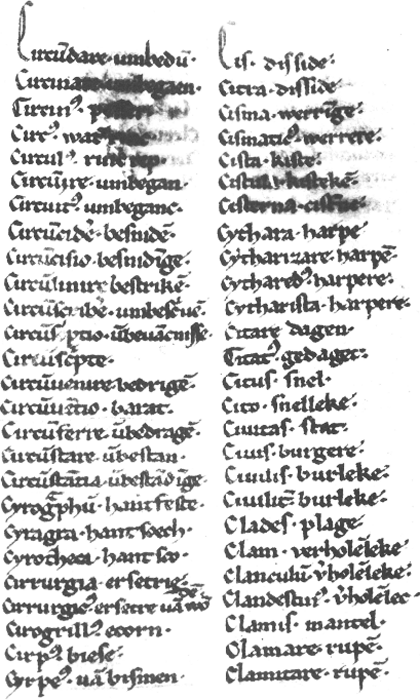 Circūdare · umbedū ·
Circinare · umbegaen ·
Circin⁹
Circ⁹
Circul⁹ · rinc rep ·
Circūire · umbegan ·
Circuit⁹ umbeganc ·
Circūcidē · besnidē ·
Circūcisio · besnidīge ·
Circūlinire bestrikē ·
Circūscribe · umbescūē ·
Circūs ptio · ūbeuācnisse ·
Circūscpte ·
Circūuenire bedrigē ·
Circūuētio · barat ·
Circūferre · ūbedragē ·
Circūstare · ūbestan ·
Circūstātia · ūbestādīge ·
Cyrogphū · hantfeste ·
Cyragra · hantsoech ·
Cyrotheca · hantsco ·
Cirrurgia · ersetrie ·
Cirrurgic⁹ · ersetre uā wōdē
Cirogrill⁹ · ecorn ·
Cirp⁹ · biese ·
Cyrpe⁹ · uā bismen ·
Cis · disside ·
Citra · disside ·
Cisma · werrīge ·
Cismatic⁹ · werrere ·
Cista · kiste ·
Cistula · kistekē ·
Cisterna · cistne ·
Cythara · harpe
Cytharizare · harpē ·
Cythared⁹ · harpere ·
Cytharista · harpere ·
Citare dagen ·
Citat⁹ · gedaget ·
Citus · snel ·
Cito · snelleke ·
Ciuitas · stat ·
Ciuis · burgere ·
Ciuilis · burleke ·
Ciuilit · burleke ·
Clades · plage ·
Clam · verholēleke ·
Clanculū · v̓holēleke ·
Clandestin⁹ · v̓holēlec ·
Clamis · mantel ·
Clamare · rupē ·
Clamitare · rupē ·